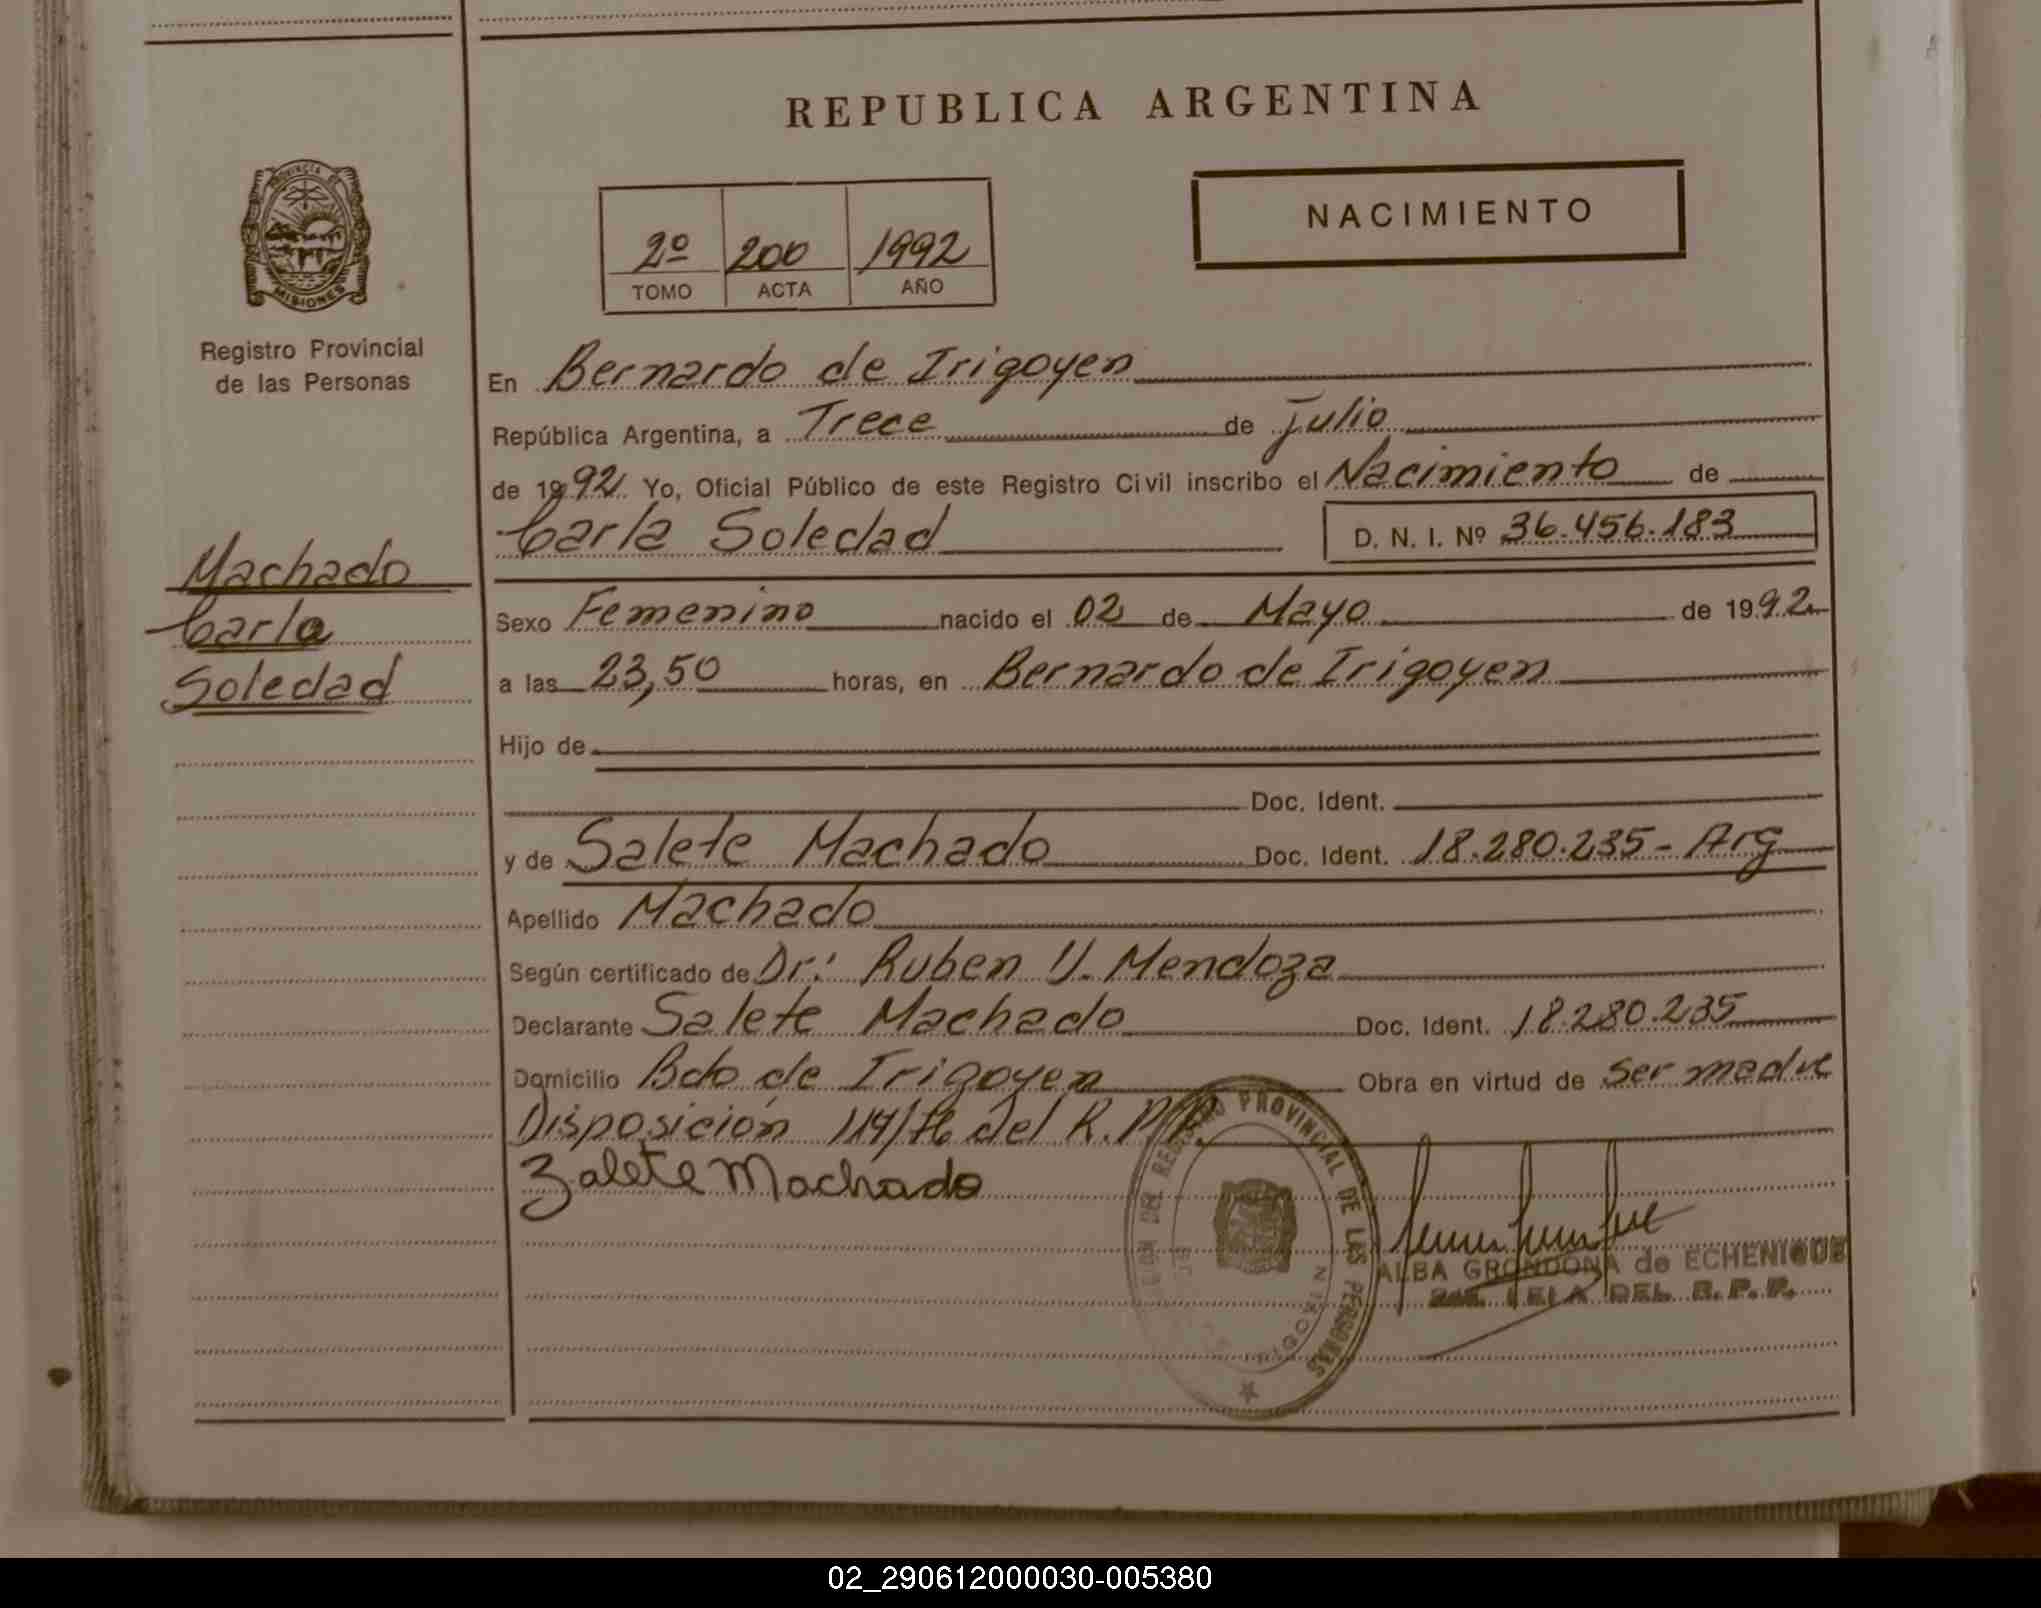 REPUBLICA ARGENTINA
PROVINCIA DE
MISIONES
Registro Provincial
de las Personas
NACIMIENTO
2º 200 1992
TOMO ACTA AÑO
En Bernardo de Irigoyen
República Argentina, a Trece de Julio
de 1992 Yo, Oficial Público de este Registro Civil inscribo el Nacimiento de
Carla Soledad D. N. I. Nº 36.456.183
Machado
Carla
Soledad
Sexo Femenino nacido el 02 de Mayo de 1992
a las 23,50 horas, en Bernardo de Irigoyen
Hijo de
Doc. Ident.
y de Salete Machado Doc. Ident. 18.280.235- Arg
Apellido Machado
Según certificado de Dr: Ruben U. Mendoza
Declarante Salete Machado Doc. Ident. 18.280.235
Domicilio Bdo de Irigoyen Obra en virtud de ser madre
Disposición 114/76 del R.P.P.
Zalete Machado
DEL REGISTRO PROVINCIAL DE LAS PERSONAS
ALBA GRONDONA de ECHENIQUE
DEL R. P. P.
02_290612000030-005380